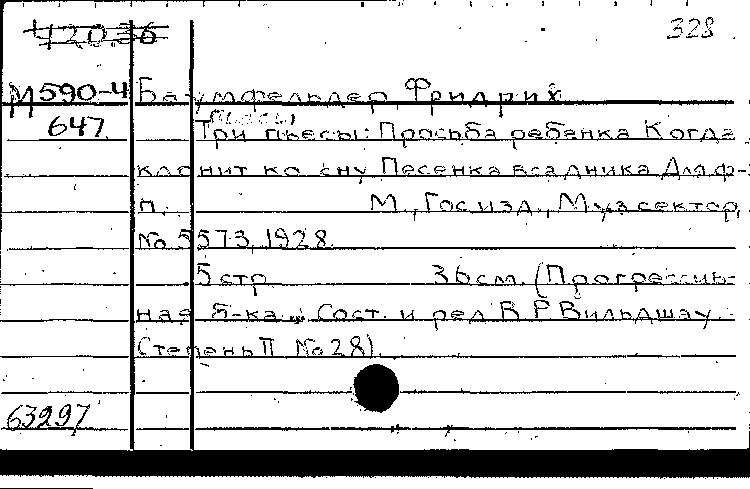 42036
328
М590-4 Баумфельдер, Фридрих
647 Пьесы
Три пьесы: Просьба ребенка Когда
клонит ко сну Песенка всадника Для ф-
п. М., Госизд., Музсектор,
No 5573, 1928
5 стр 36 см. (Прогрессив-
ная б-ка. Сост. и ред В Р Вильдшау.
Степень II No 28).
63297